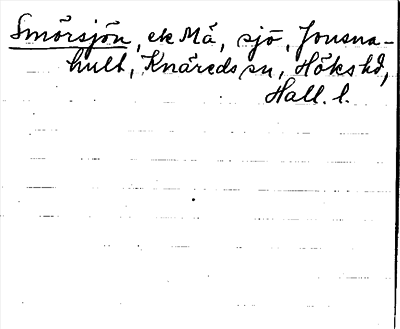 Smörsjön, ek Må, sjö, Jonsna-
hult, Knäreds sn, Höks hd,
Hall. l.